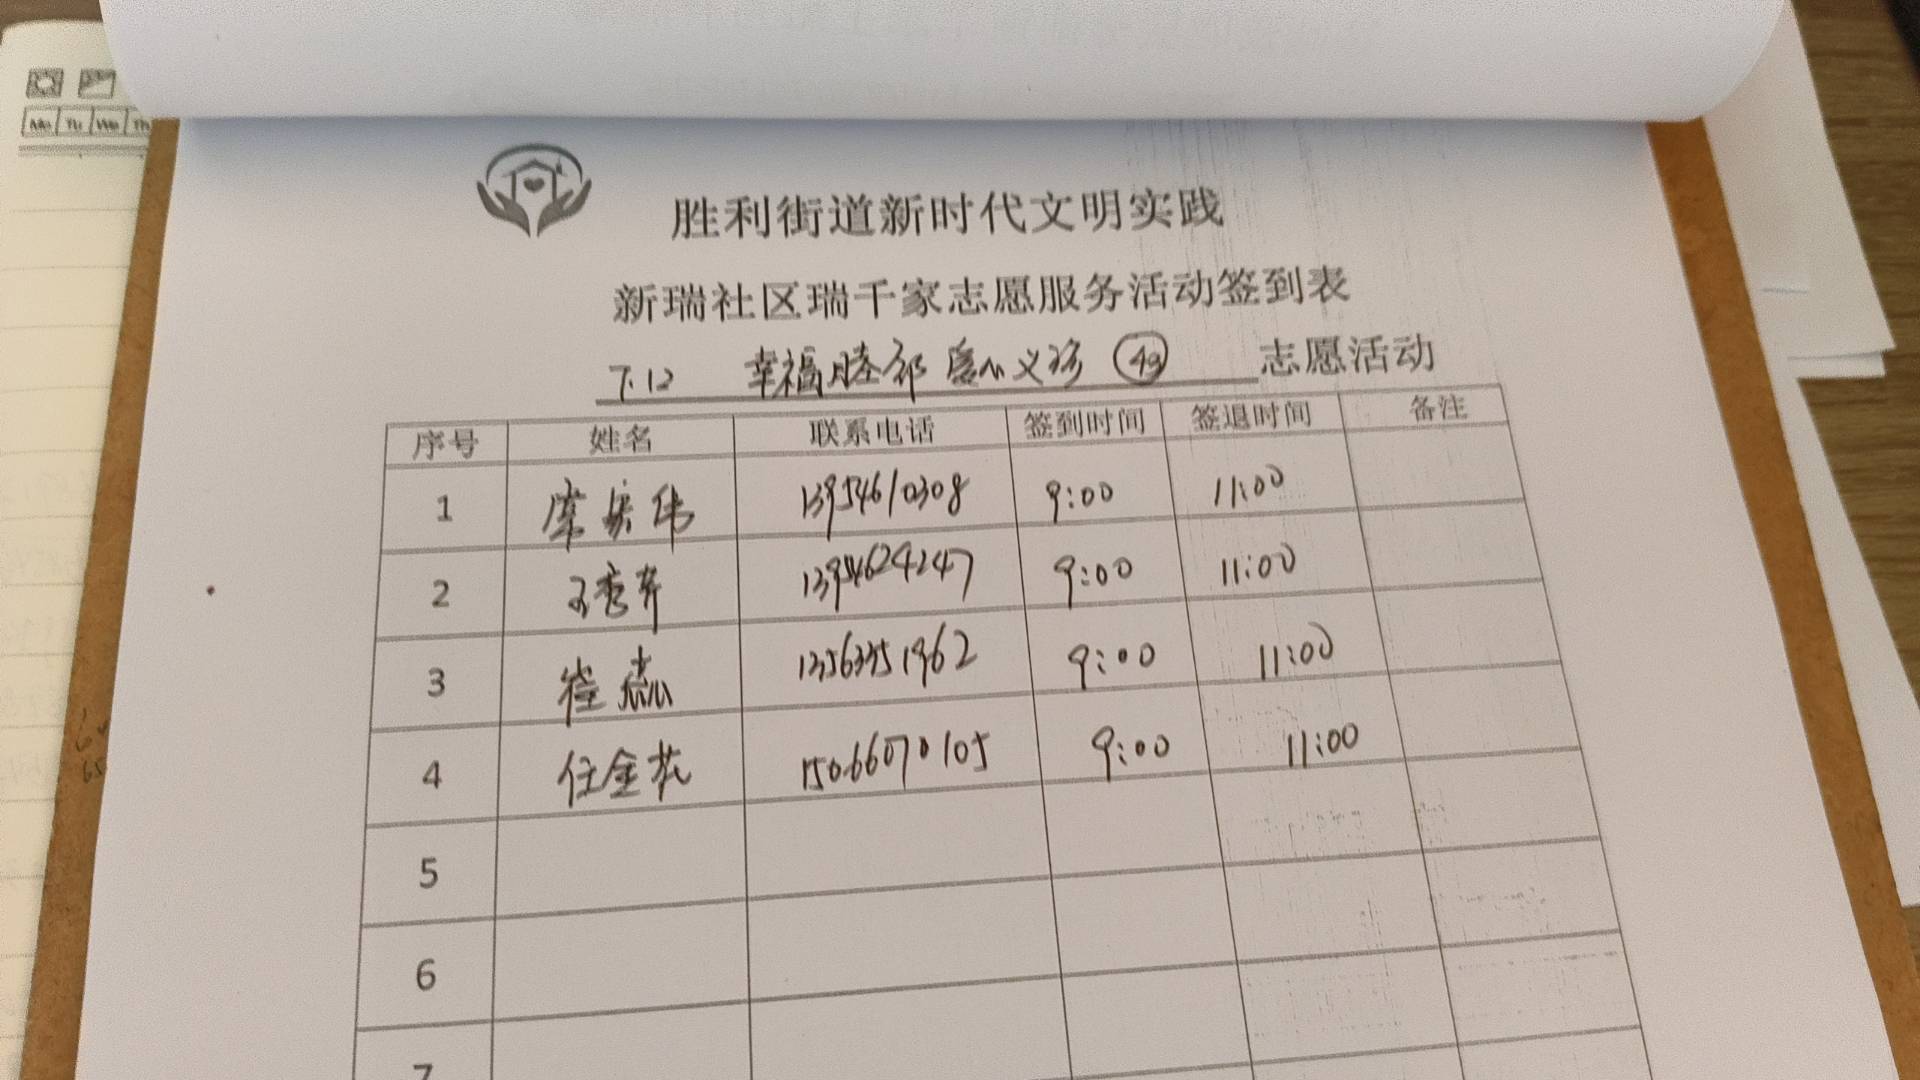 Mo Tu We Th
胜利街道新时代文明实践
新瑞社区瑞千家志愿服务活动签到表
7.12 幸福睦邻 爱心义诊 49 志愿活动
序号 姓名 联系电话 签到时间 签退时间 备注
1 13954610308 9:00 11:00
2 9:00 11:00
3 崔蕊 9:00 11:00
4 任金花 15066070105 9:00 11:00
5
6
7